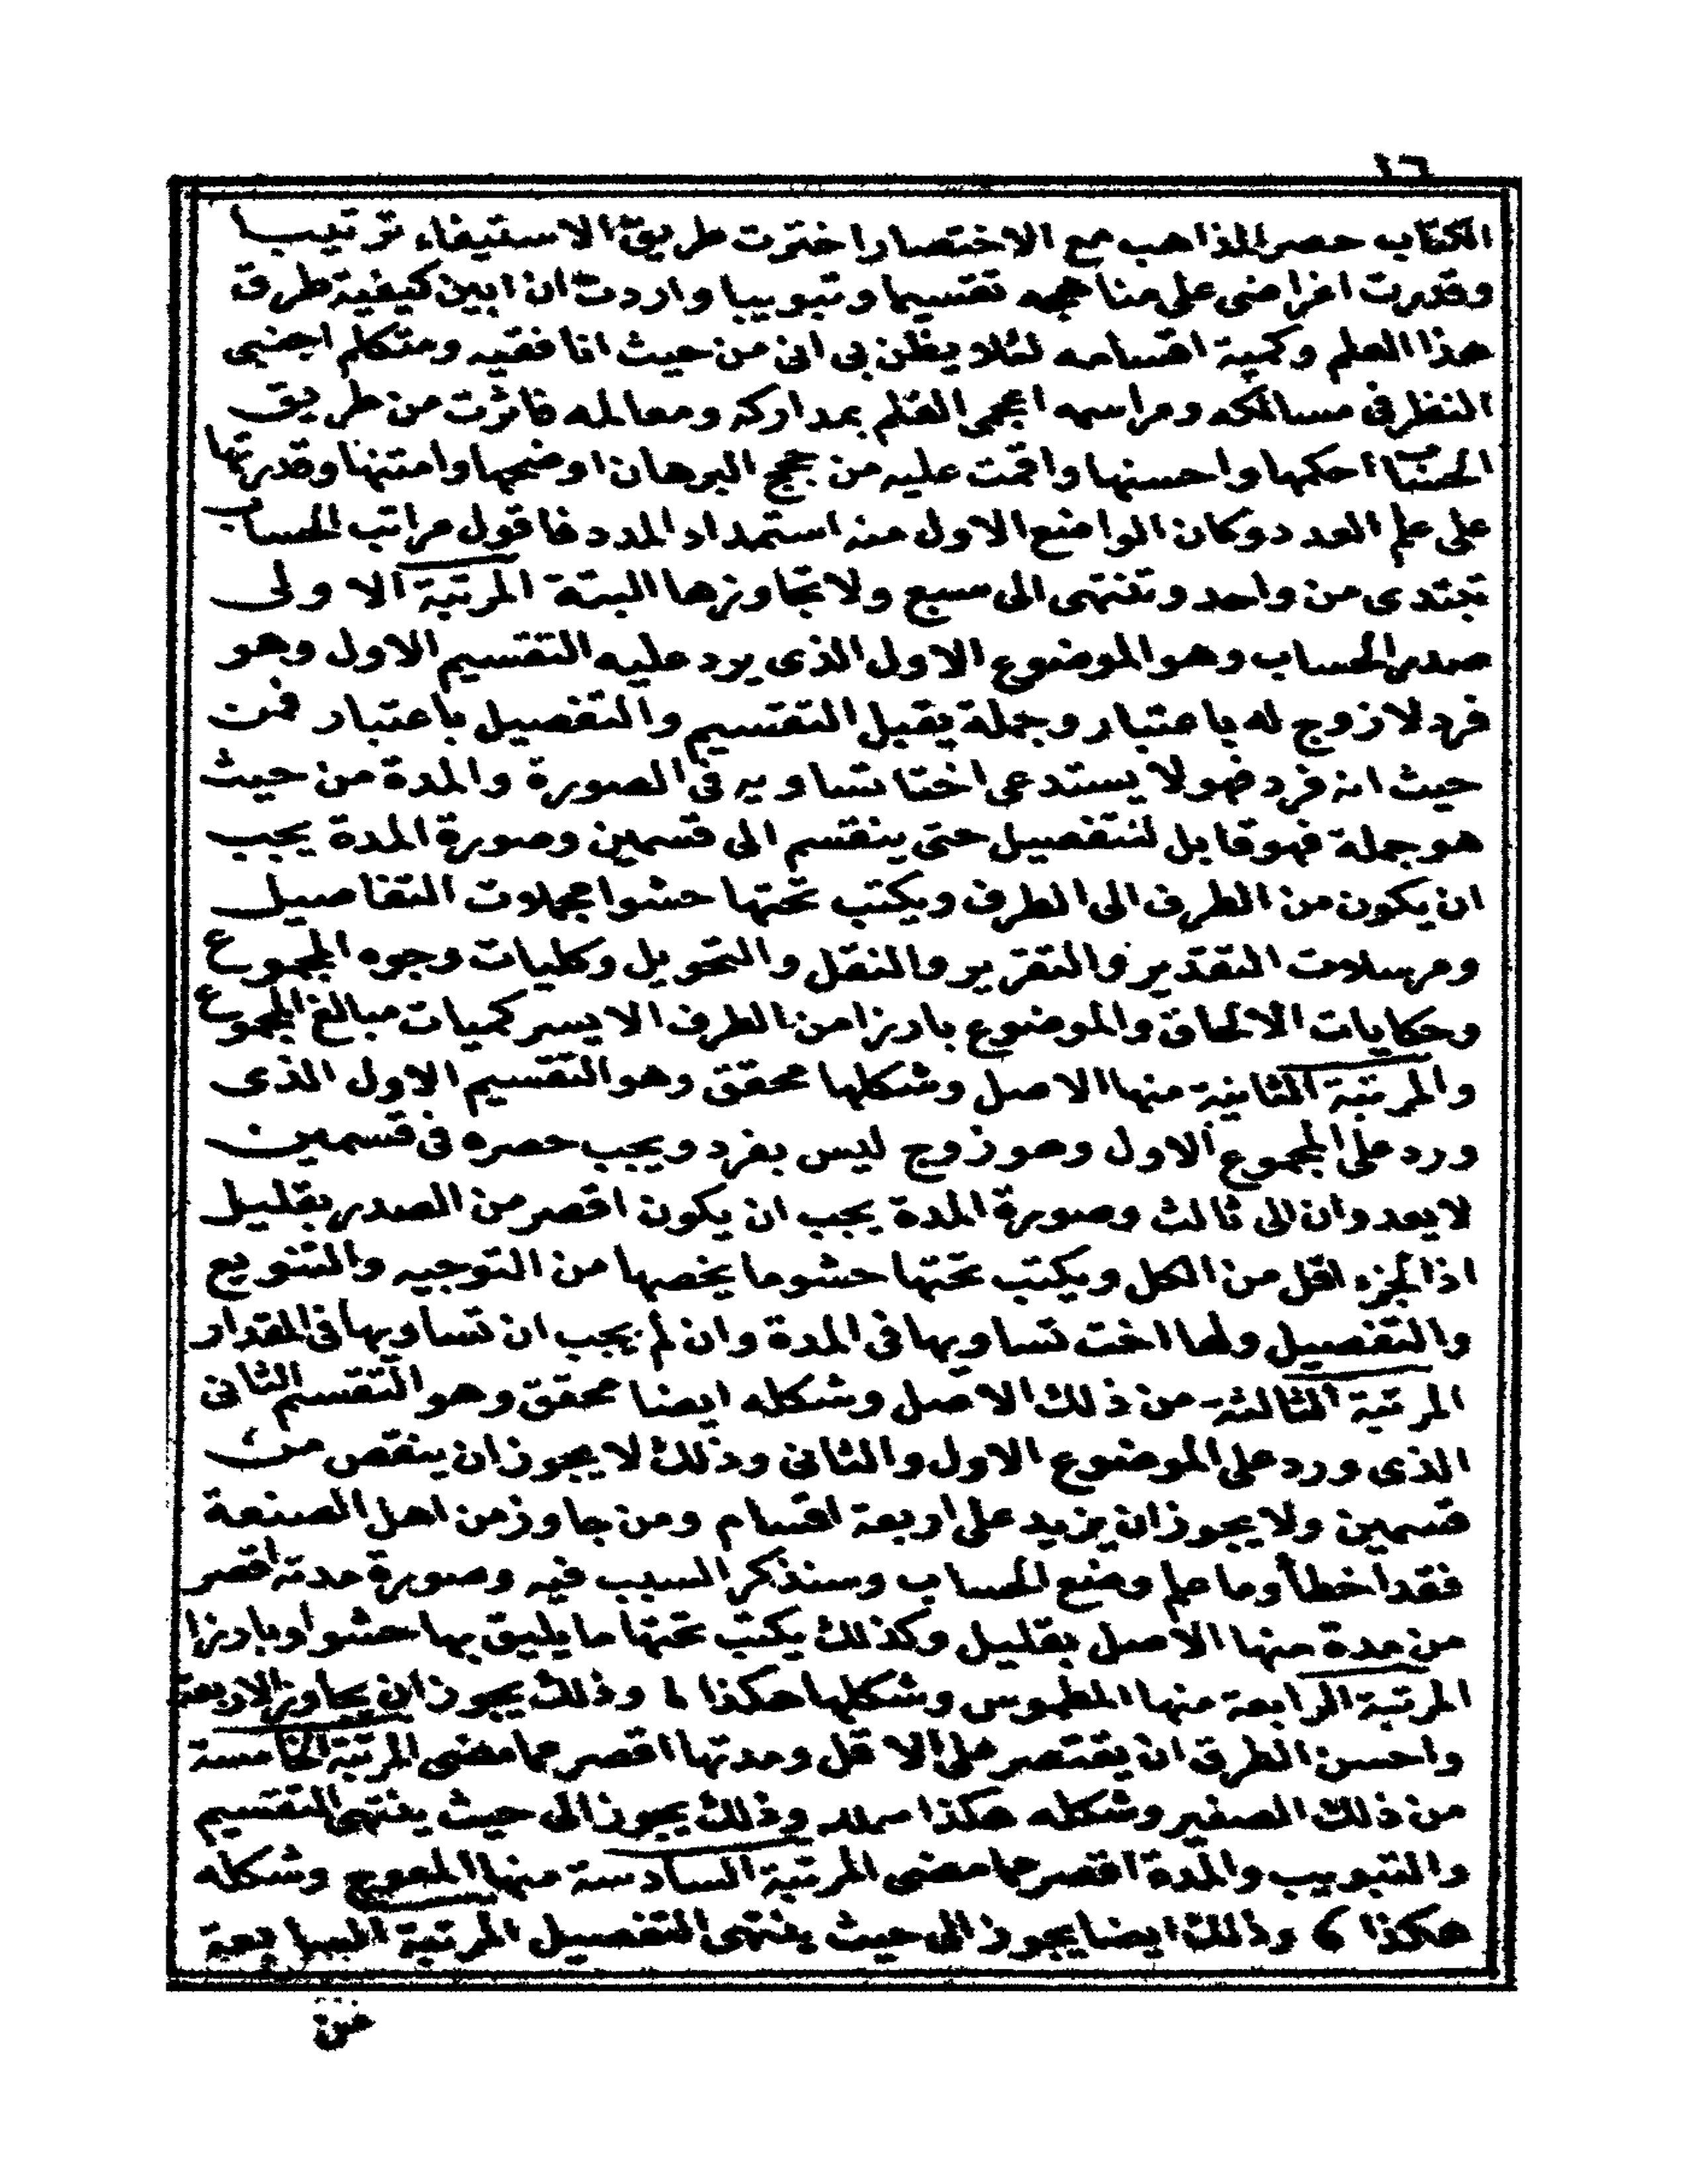 ١٦
الكتاب حصر المذاهب مع الاختصار اخترت طريق الاستيفاء ترتيبا
وقدرت اغراضى على مناهجه تقسيما وتبويبا واردت ان ابين كيفية طرق
هذا العلم وكمية اقسامه لئلا يظن بى انى من حيث انا فقيه ومتكلم اجنبى
النظر فى مسالكه ومراسمه اعجمى القلم بمداركه ومعالمه فاثرت من طريق
الحساب احكمها واحسنها واقمت عليه من حجج البرهان اوضحها وامتنها وقدرتها
على علم العدد وكان الواضع الاول منه استمداد المدد فاقول مراتب الحساب
تبتدى من واحد وتنتهى الى سبع ولا تجاوزها البتة المرتبة الاولى
صدر الحساب وهو الموضوع الاول الذى يرد عليه التقسيم الاول وهو
فرد لا زوج له باعتبار وجملة يقبل التقسيم والتفصيل باعتبار فمن
حيث انه فرد فهو لا يستدعى اختا تساويه فى الصورة والمدة من حيث
هو جملة فهو قابل لتفصيل حتى ينقسم الى قسمين وصورة المدة يجب
ان يكون من الطرف الى الطرف ويكتب تحتها حشوا مجملات التفاصيل
ومرسلات التقدير والتقرير والنقل والتحويل وكليات وجوه المجموع
وحكايات الالحاق والموضوع بارزا من الطرف الايسر كميات مبالغ المجموع
والمرتبة الثانية منها الاصل وشكلها محقق وهو التقسيم الاول الذى
ورد على المجموع الاول وهو زوج ليس بفرد ويجب حصره فى قسمين
لا يعدوان الى ثالث وصورة المدة يجب ان يكون اقصر من الصدر بقليل
اذ الجزء اقل من الكل ويكتب تحتها حشوما يخصها من التوجيه والتنويع
والتفصيل ولها اخت تساويها فى المدة وان لم يجب ان تساويها فى المقدار
المرتبة الثالثة من ذلك الاصل وشكله ايضا محقق وهو التقسيم الثانى
الذى ورد على الموضوع الاول والثانى وذلك لا يجوز ان ينقص من
قسمين ولا يجوز ان يزيد على اربعة اقسام ومن جاوز من اهل الصنعة
فقد اخطأ وما علم وضع الحساب وسنذكر السبب فيه وصورة مدته اقصر
من مدة منها الاصل بقليل وكذلك يكتب تحتها ما يليق بها حشوا وبارزا
المرتبة الرابعة منها المطموس وشكلها هكذا وذلك يجوز ان يجاوز الاربعة
واحسن الطرق ان يقتصر على الاقل ومدتها اقصر مما مضى المرتبة الخامسة
من ذلك الصغير وشكله هكذا وذلك يجوز الى حيث ينتهى التقسيم
والتبويب والمدة اقصر مما مضى المرتبة السادسة منها المعوج وشكله
هكذا وذلك ايضا يجوز الى حيث ينتهى التفصيل المرتبة السابعة
من